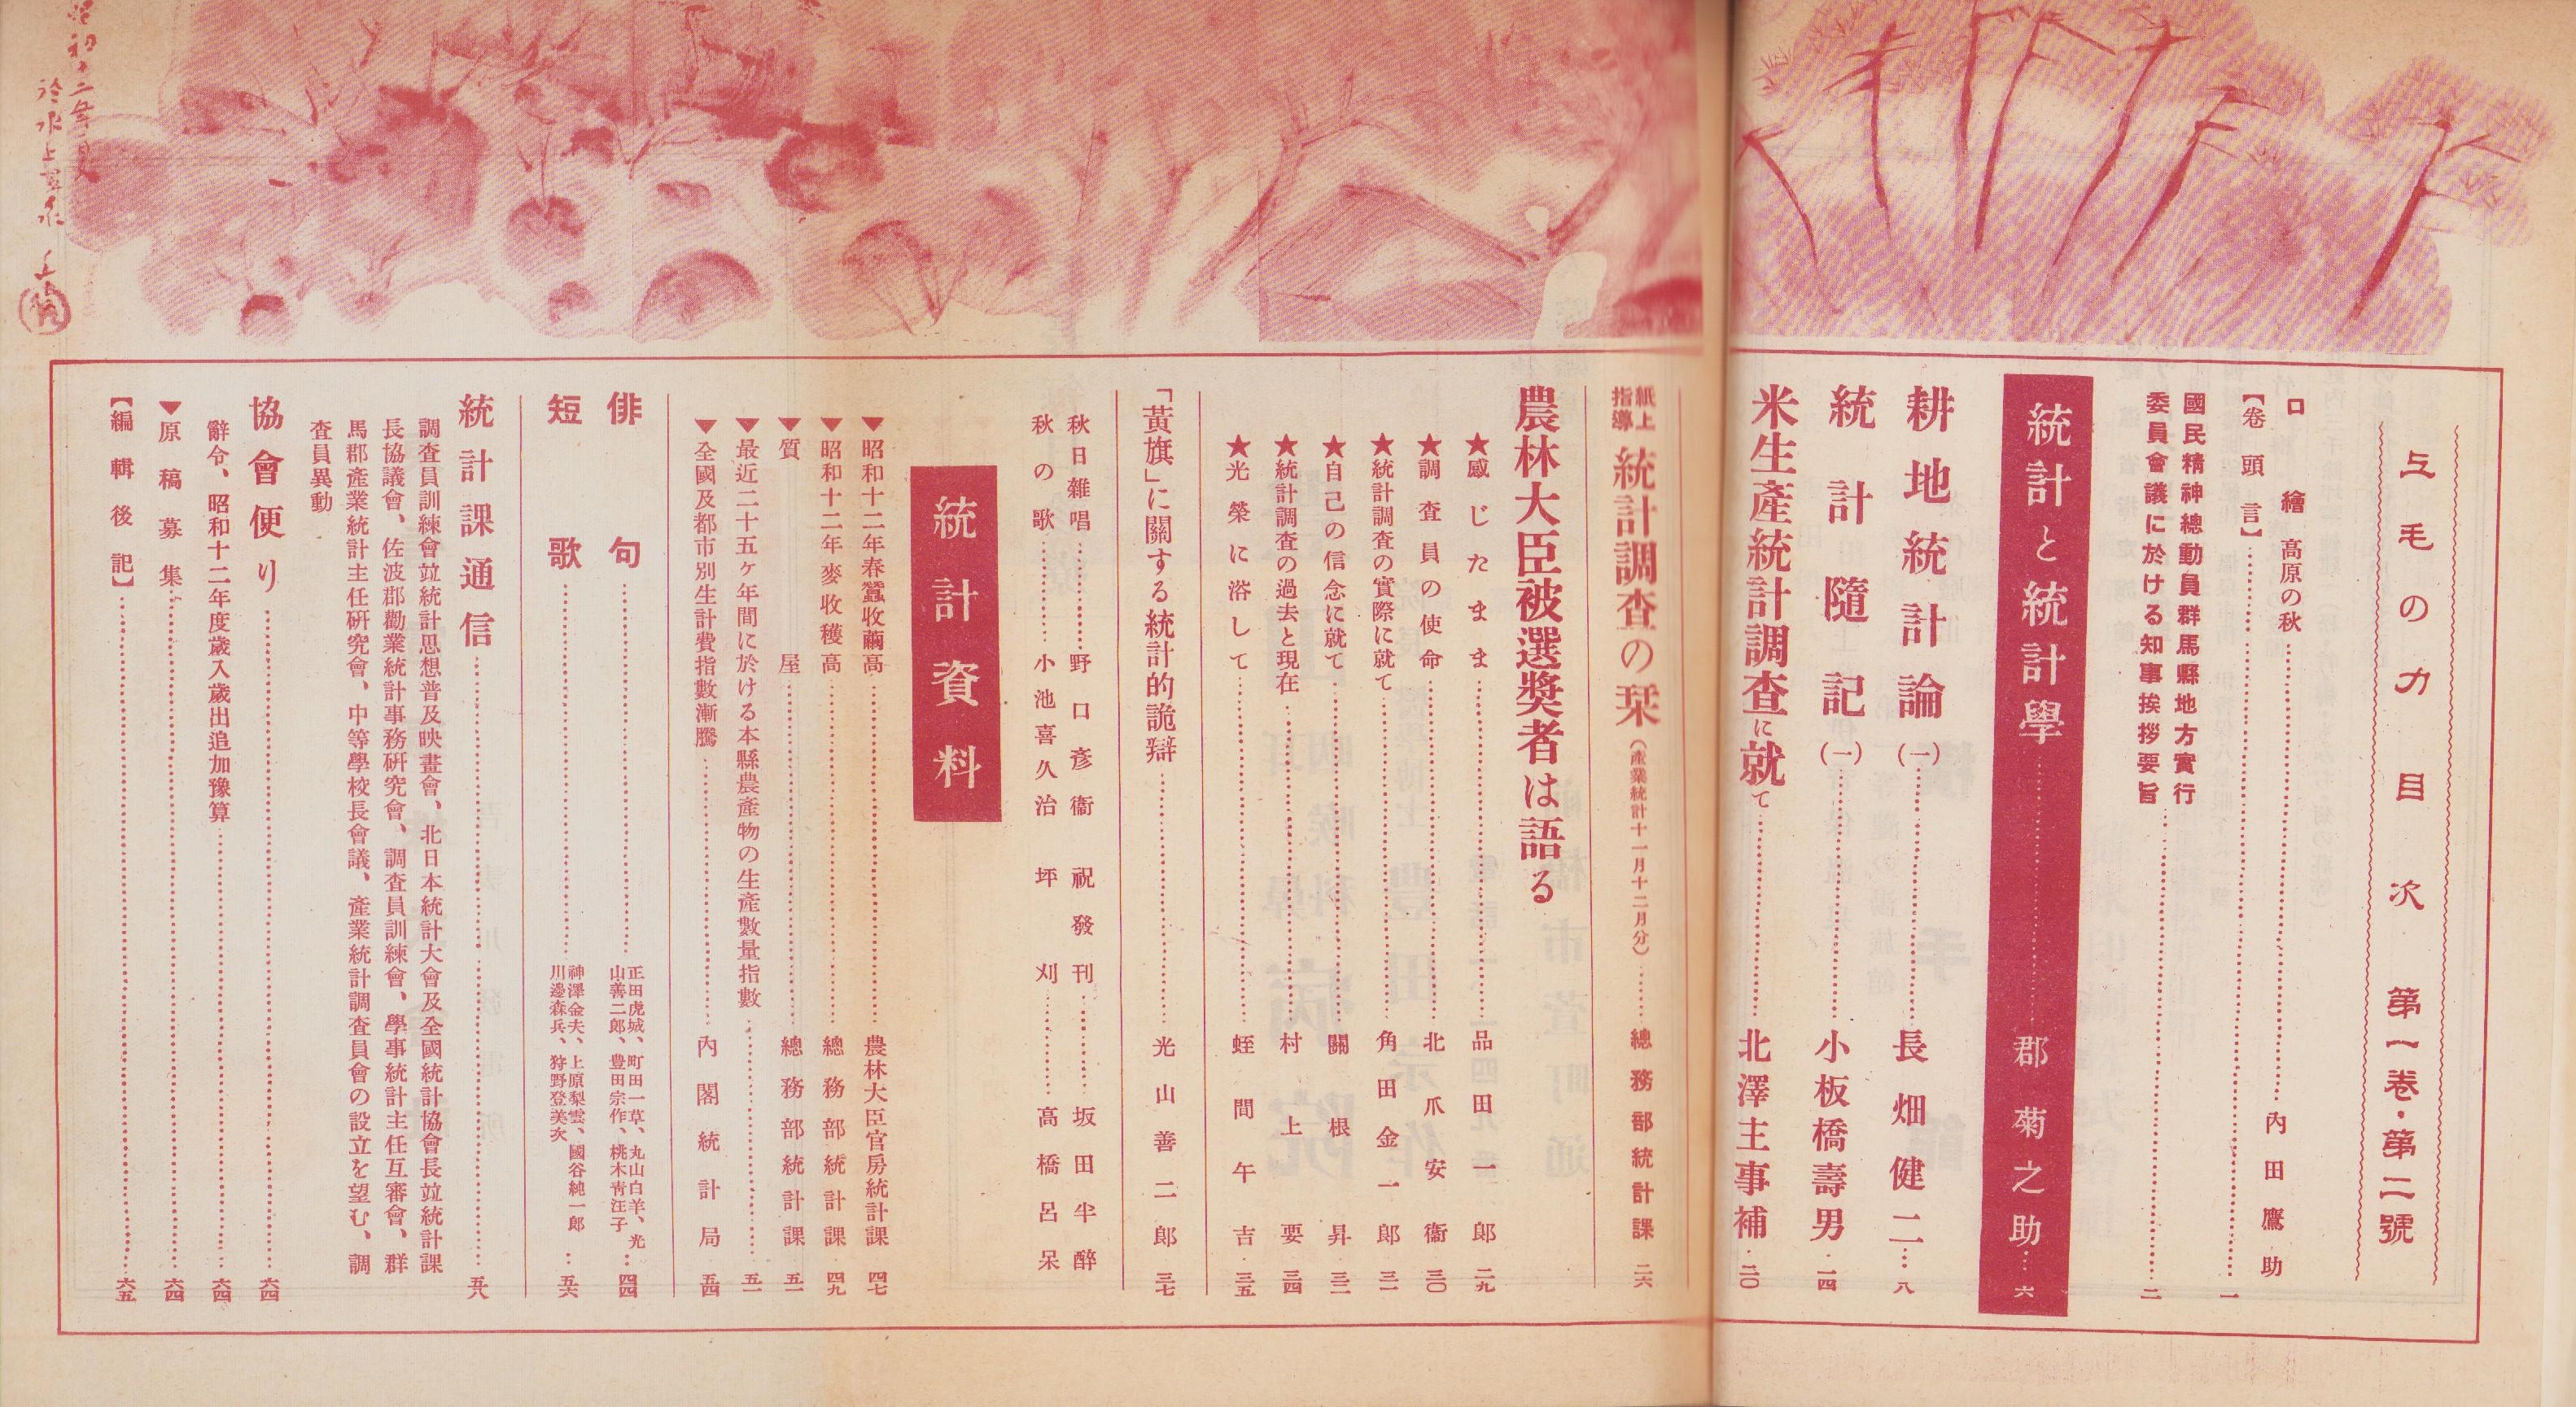 上毛の力 目次 第一卷・第二號
口繪 高原の秋 内田鷹助
【卷頭言】 一
國民精神總動員群馬縣地方實行
委員會議に於ける知事挨拶要旨 二
統計と統計學 郡菊之助 六
耕地統計論(一) 長畑健二 八
統計隨記(一) 小板橋壽男 一四
米生產統計調査に就て 北澤主事補 二〇
紙上
指導 統計調査の栞(產業統計十一月十二月分) 總務部統計課 二六
農林大臣被選奬者は語る
★感じたまま 品田一郎 二九
★調査員の使命 北爪安衞 三〇
★統計調査の實際に就て 角田金一郎 三一
★自己の信念に就て 關根昇 三二
★統計調査の過去と現在 村上要 三四
★光榮に浴して 蛭間午吉 三五
「黃旗」に關する統計的詭辯 光山善二郎 三七
秋日雜唱 野口彥衞 祝發刊 坂田半醉
秋の歌 小池喜久治 坪刈 高橋呂呆
統計資料
▼昭和十二年春蠶收繭高 農林大臣官房統計課 四七
▼昭和十二年麥收穫高 總務部統計課 四九
▼質屋 總務部統計課 五一
▼最近二十五ケ年間に於ける本縣農產物の生產數量指數 五二
▼全國及都市別生計費指數漸騰 内閣統計局 五四
俳句 正田虎城、町田一草、丸山白羊、光
山善二郎、豊田宗作、桃木靑汪子 四四
短歌 神澤金夫、上原梨雲、國谷純一郎
川邊森兵、狩野登美次 五六
統計課通信 五八
調査員訓練會竝統計思想普及映畫會、北日本統計大會及全國統計協會長竝統計課
長協議會、佐波郡勸業統計事務硏究會、調査員訓練會、學事統計主任互審會、群
馬郡產業統計主任硏究會、中等學校長會議、產業統計調査員會の設立を望む、調
査員異動
協會便り 六四
辭令、昭和十二年度歲入歲出追加豫算 六四
▼原稿募集 六四
【編輯後記】 六五